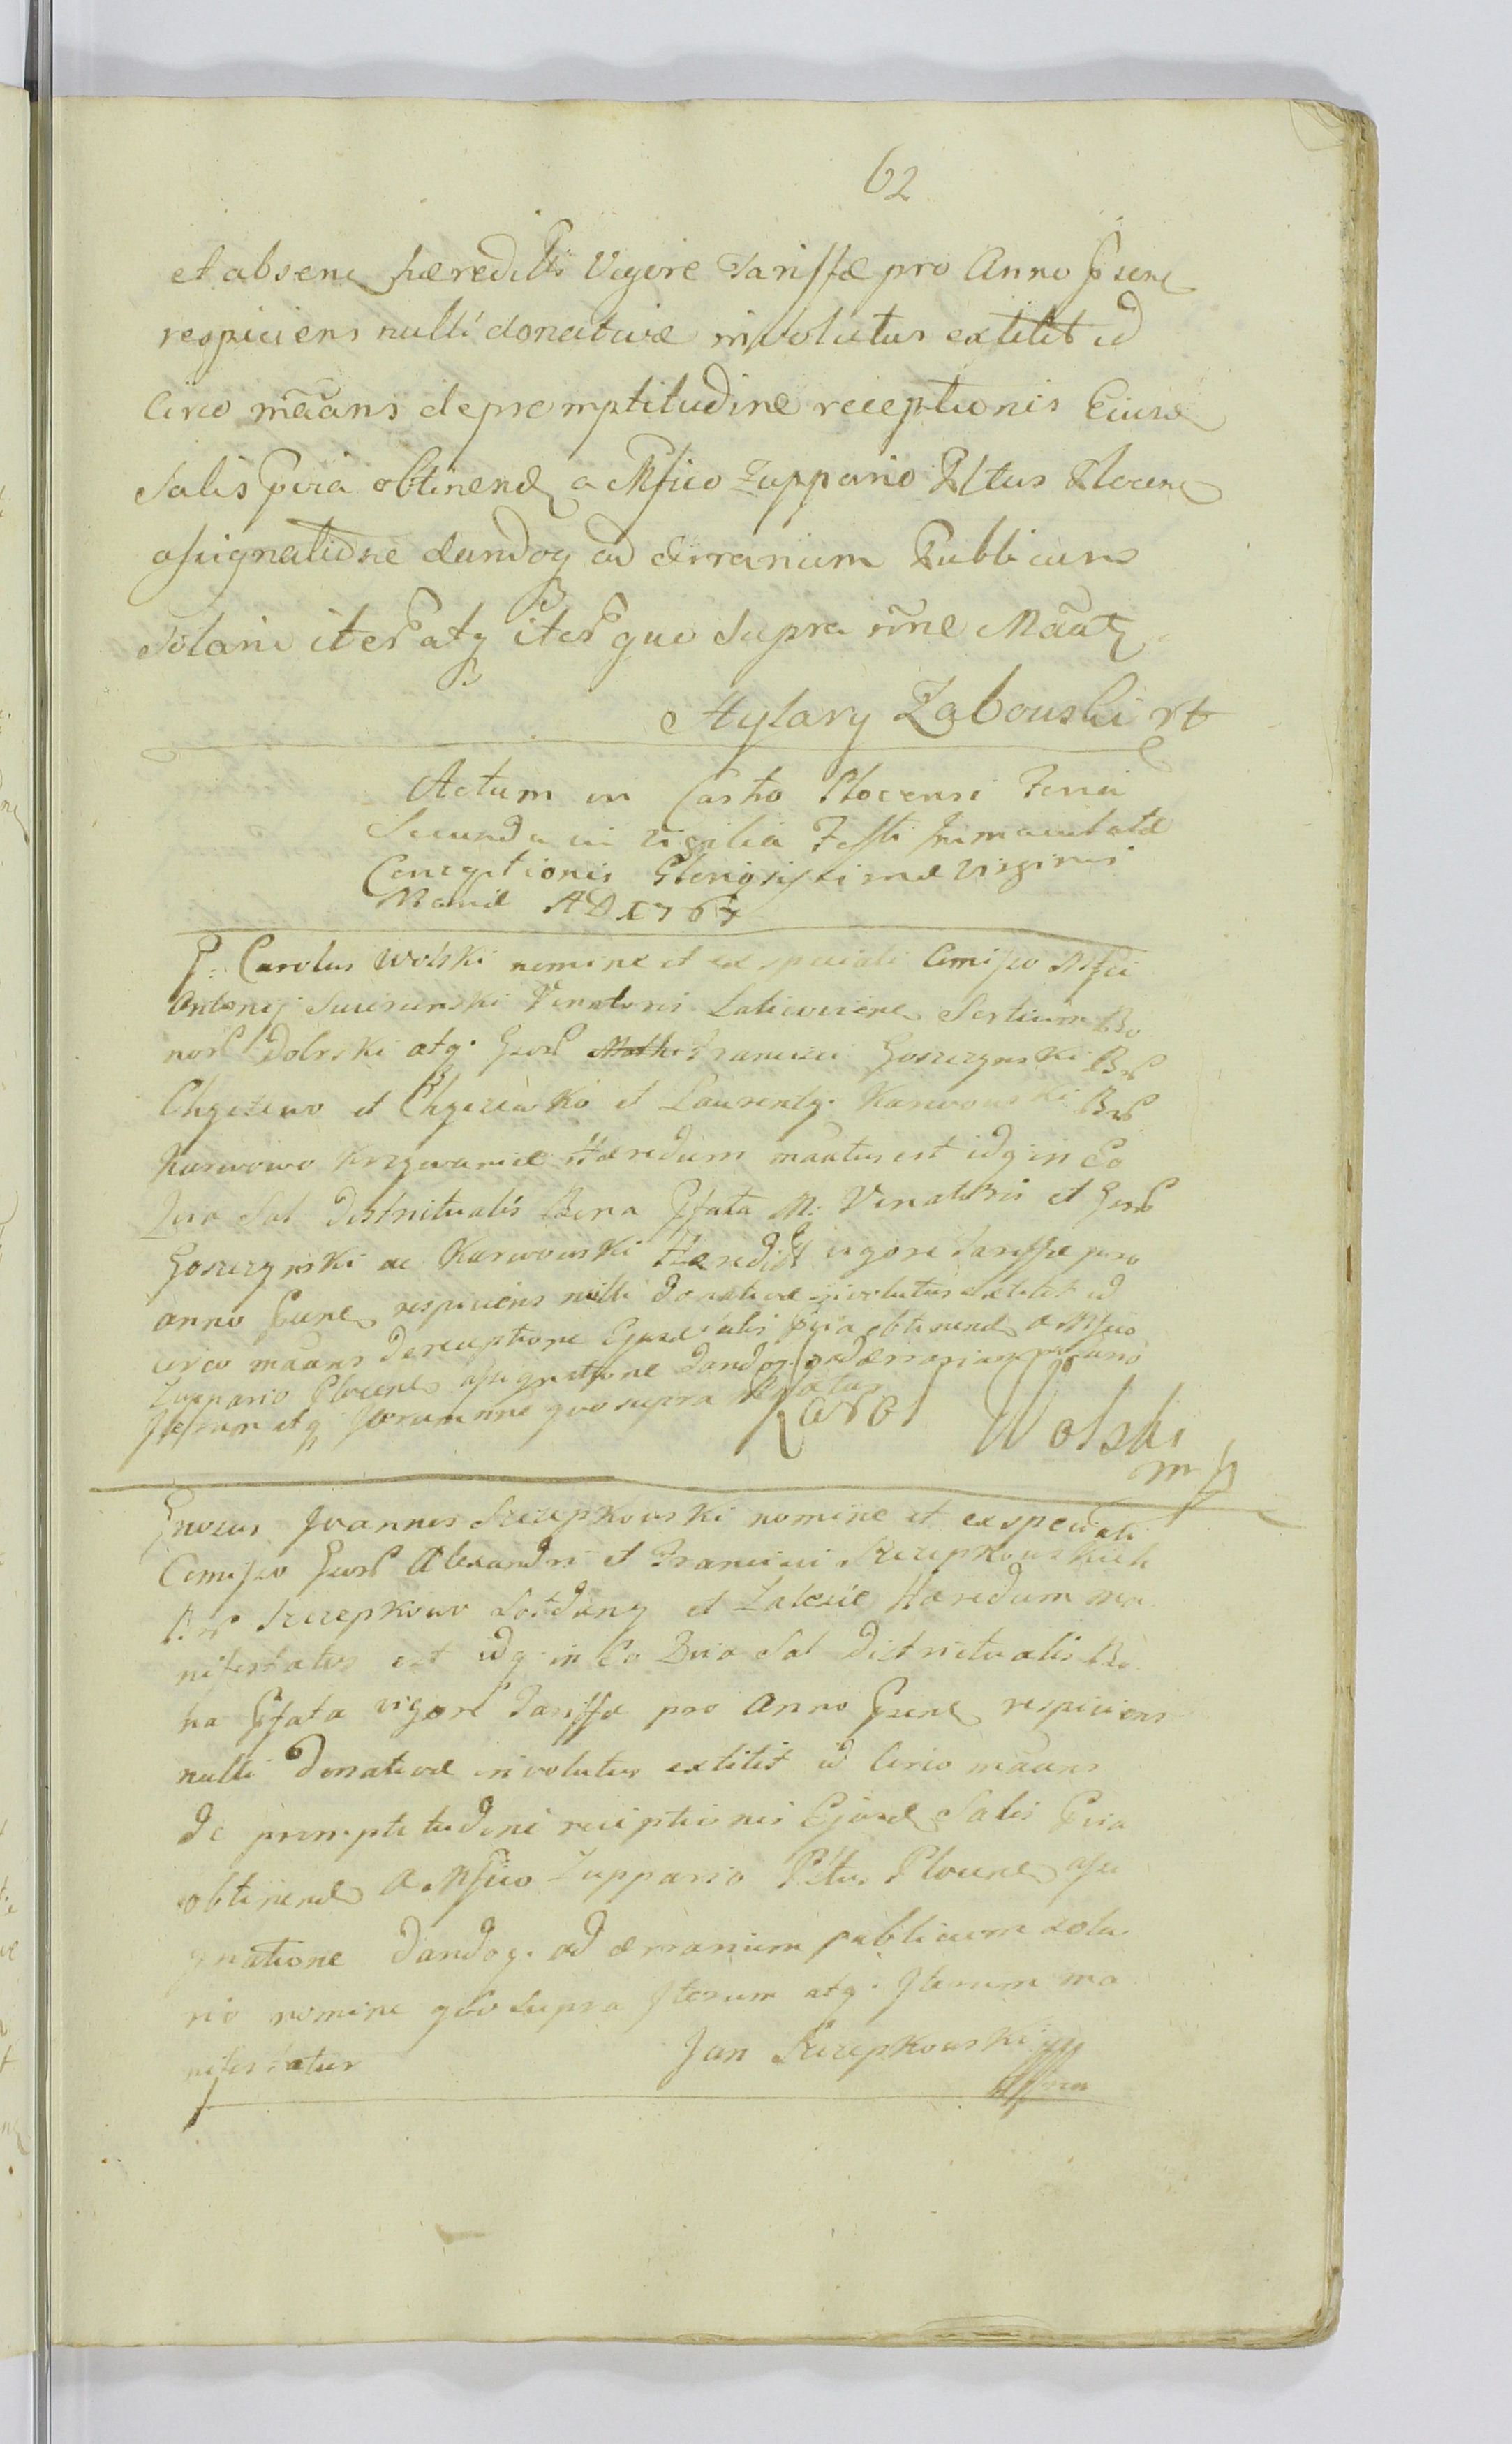 62
et absenc hæredibs Vigore Tariffæ pro Anno Psenc
respiciens nulli donativæ involutus extitit id
Circo mãans de promptitudine receptionis Eiusd
Salis pvia obtinend a Mfico Zuppario Pltus Plocenc
assignatione dandoq ad Ærrarium Publicum
Solari iter atq iter quo supra nne Mãat
Hylary Zabouski
Actum in Castro Plocensi Feria
Secunda in Vigilia Festi Immaculatæ
Conceptionis Gloriosissimæ Virginis
Mariæ AD 1767
G: Carolus Wolski nomine et ex speciali Comisso Mfci
Antonij Venatoris Sortium Bo
nor Dolrski atq Gsor Francisci Goszczynski Br
Chyczewo et Chyczewko et Laurenty Karwowski Br
Karwowo Krzywanice Hæredum mãatus est idq in Eo
Quia Sal Districtualis Bona Pfata M: Venatoris et Gsor
Goszczynski ac Karwowski Hæredu vigore Tariffæ pro
anno Psenc respiciens nulli Donativæ involutus extitit id
circo mãans De receptione Ejusd Salis pvia obtinend a Mfico
Zuppario Plocenc assignatione Dandoq ad ærrarium
Iterum atq Iterum nne quo supra
Karol Wolski
mp
Gnosus Joannes Szczepkowski nomine et ex speciali
Comisso Gsor Alexandri et Francisci Szczepkowskich
Br Szczepkowo et Zalesie Hæredum ma
nifestatus est idq in Eo Quia Sal Districtualis Bo
na Pfata vigore Tariffæ pro Anno Psenc respiciens
nulli Donativæ involutus extitit id Circo mãans
De promptitudine receptionis Ejusd Salis Pvia
obtinend a Mfico Zuppario Pltus Plocenc assi
gnatione Dandoq ad ærrarium publicum sola
rio nomine quo supra Iterum atq Iterum ma
nifestatur
Jan Szczepkowski